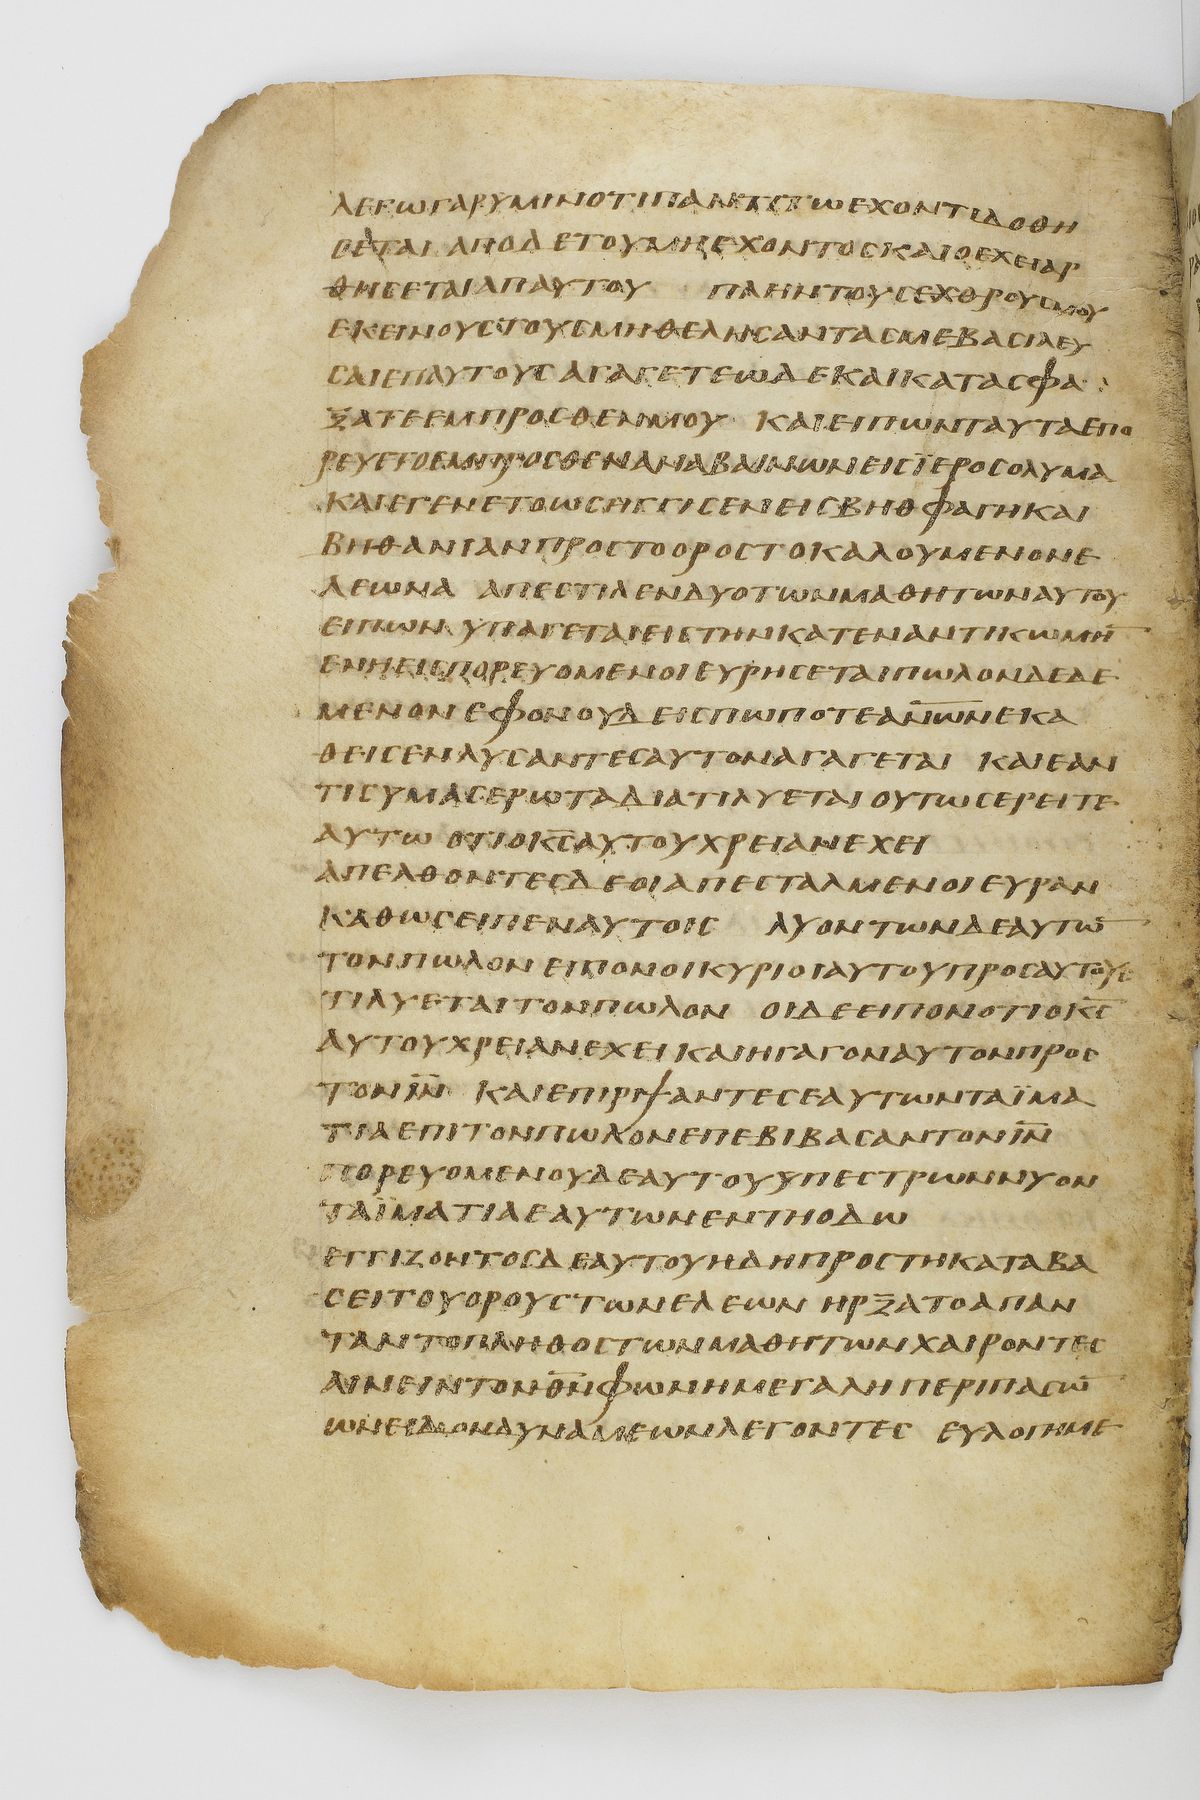 ΛΕΓΩΓΑΡΥΜΙΝΟΤΙΠΑΝΤΙΤΩΕΧΟΝΤΙΔΟΘΗ
ΣΕΤΑΙ ΑΠΟΔΕΤΟΥΜΗΕΧΟΝΤΟΣΚΑΙΟΕΧΕΙΑΡ
ΘΗΣΕΤΑΙΑΠΑΥΤΟΥ ΠΛΗΝΤΟΥΣΕΧΘΡΟΥΣΜΟΥ
ΕΚΕΙΝΟΥΣΤΟΥΣΜΗΘΕΛΗΣΑΝΤΑΣΜΕΒΑΣΙΛΕΥ
ΣΑΙΕΠΑΥΤΟΥΣΑΓΑΓΕΤΕΩΔΕΚΑΙΚΑΤΑΣΦΑ
ΞΑΤΕΕΜΠΡΟΣΘΕΝΜΟΥ ΚΑΙΕΙΠΩΝΤΑΥΤΑΕΠΟ
ΡΕΥΕΤΟΕΜΠΡΟΣΘΕΝΑΝΑΒΑΙΝΩΝΕΙΣΪΕΡΟΣΟΛΥΜΑ
ΚΑΙΕΓΕΝΕΤΟΩΣΗΓΓΙΣΕΝΕΙΣΒΗΘΦΑΓΗΚΑΙ
ΒΗΘΑΝΙΑΝΠΡΟΣΤΟΟΡΟΣΤΟΚΑΛΟΥΜΕΝΟΝΕ
ΛΕΩΝΑ ΑΠΕΣΤΙΛΕΝΔΥΟΤΩΝΜΑΘΗΤΩΝΑΥΤΟΥ
ΕΙΠΩΝΥΠΑΓΕΤΑΙΕΙΣΤΗΝΚΑΤΕΝΑΝΤΙΚΩΜΗ̅
ΕΝΗΕΙΣΠΟΡΕΥΟΜΕΝΟΙΕΥΡΗΣΕΤΑΙΠΩΛΟΝΔΕΔΕ
ΜΕΝΟΝΕΦΟΝΟΥΔΕΙΣΠΩΠΟΤΕΑ̅Ν̅Ω̅Ν̅ΕΚΑ
ΘΕΙΣΕΝΛΥΣΑΝΤΕΣΑΥΤΟΝΑΓΑΓΕΤΑΙ ΚΑΙΕΑΝ
ΤΙΣΥΜΑΣΕΡΩΤΑΔΙΑΤΙΛΥΕΤΑΙΟΥΤΩΣΕΡΕΙΤΕ
ΑΥΤΩ ΟΤΙΟΚ̅Σ̅ΑΥΤΟΥΧΡΕΙΑΝΕΧΕΙ
ΑΠΕΛΘΟΝΤΕΣΔΕΟΙΑΠΕΣΤΑΛΜΕΝΟΙΕΥΡΑΝ
ΚΑΘΩΣΕΙΠΕΝΑΥΤΟΙΣ ΛΥΟΝΤΩΝΔΕΑΥΤΩ̅
ΤΟΝΠΩΛΟΝΕΙΠΟΝΟΙΚΥΡΙΟΙΑΥΤΟΥΠΡΟΣΑΥΤΟΥΣ
ΤΙΛΥΕΤΑΙΤΟΝΠΩΛΟΝ ΟΙΔΕΕΙΠΟΝΟΤΙΟΚ̅Σ̅
ΑΥΤΟΥΧΡΕΙΑΝΕΧΕΙΚΑΙΗΓΑΓΟΝΑΥΤΟΝΠΡΟΣ
ΤΟΝΙ̅Ν̅ ΚΑΙΕΠΙΡΙΨΑΝΤΕΣΕΑΥΤΩΝΤΑΪΜΑ
ΤΙΑΕΠΙΤΟΝΠΩΛΟΝΕΠΕΒΙΒΑΣΑΝΤΟΝΙ̅Ν̅
ΠΟΡΕΥΟΜΕΝΟΥΔΕΑΥΤΟΥΥΠΕΣΤΡΩΝΝΥΟΝ
ΤΑΪΜΑΤΙΑΕΑΥΤΩΝΕΝΤΗΟΔΩ
ΕΓΓΙΖΟΝΤΟΣΔΕΑΥΤΟΥΗΔΗΠΡΟΣΤΗΚΑΤΑΒΑ
ΣΕΙΤΟΥΟΡΟΥΣΤΩΝΕΛΕΩΝ ΗΡΞΑΤΟΑΠΑΝ
ΤΑΝΤΟΠΛΗΘΟΣΤΩΝΜΑΘΗΤΩΝΧΑΙΡΟΝΤΕΣ
ΑΙΝΕΙΝΤΟΝΘ̅Ν̅ΦΩΝΗΜΕΓΑΛΗΠΕΡΙΠΑΣΩ̅
ΩΝΕΙΔΟΝΔΥΝΑΜΕΩΝΛΕΓΟΝΤΕΣ ΕΥΛΟΓΗΜΕ